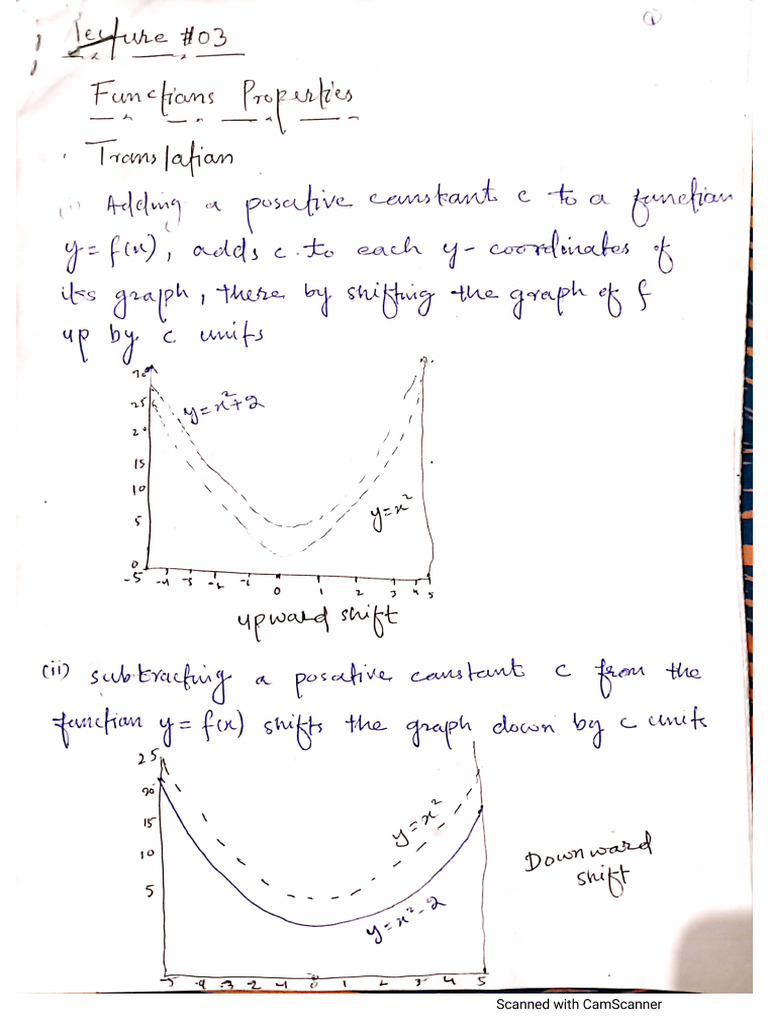 ①
Lecture #03
Functions Properties
Translation
(i) Adding a posative constant c to a function
y = f(x), adds c to each y-coordinates of
its graph, there by shifting the graph of f
up by c units
30
25
20
15
10
5
0
y=x²+2
y=x²
-5 -4 -3 -2 -1 0 1 2 3 4 5
upward shift
(ii) subtracting a posative constant c from the
function y = f(x) shifts the graph down by c units
25
20
15
10
5
y=x²
y=x²-2
Downward
shift
-5 -4 -3 -2 -1 0 1 2 3 4 5
Scanned with CamScanner